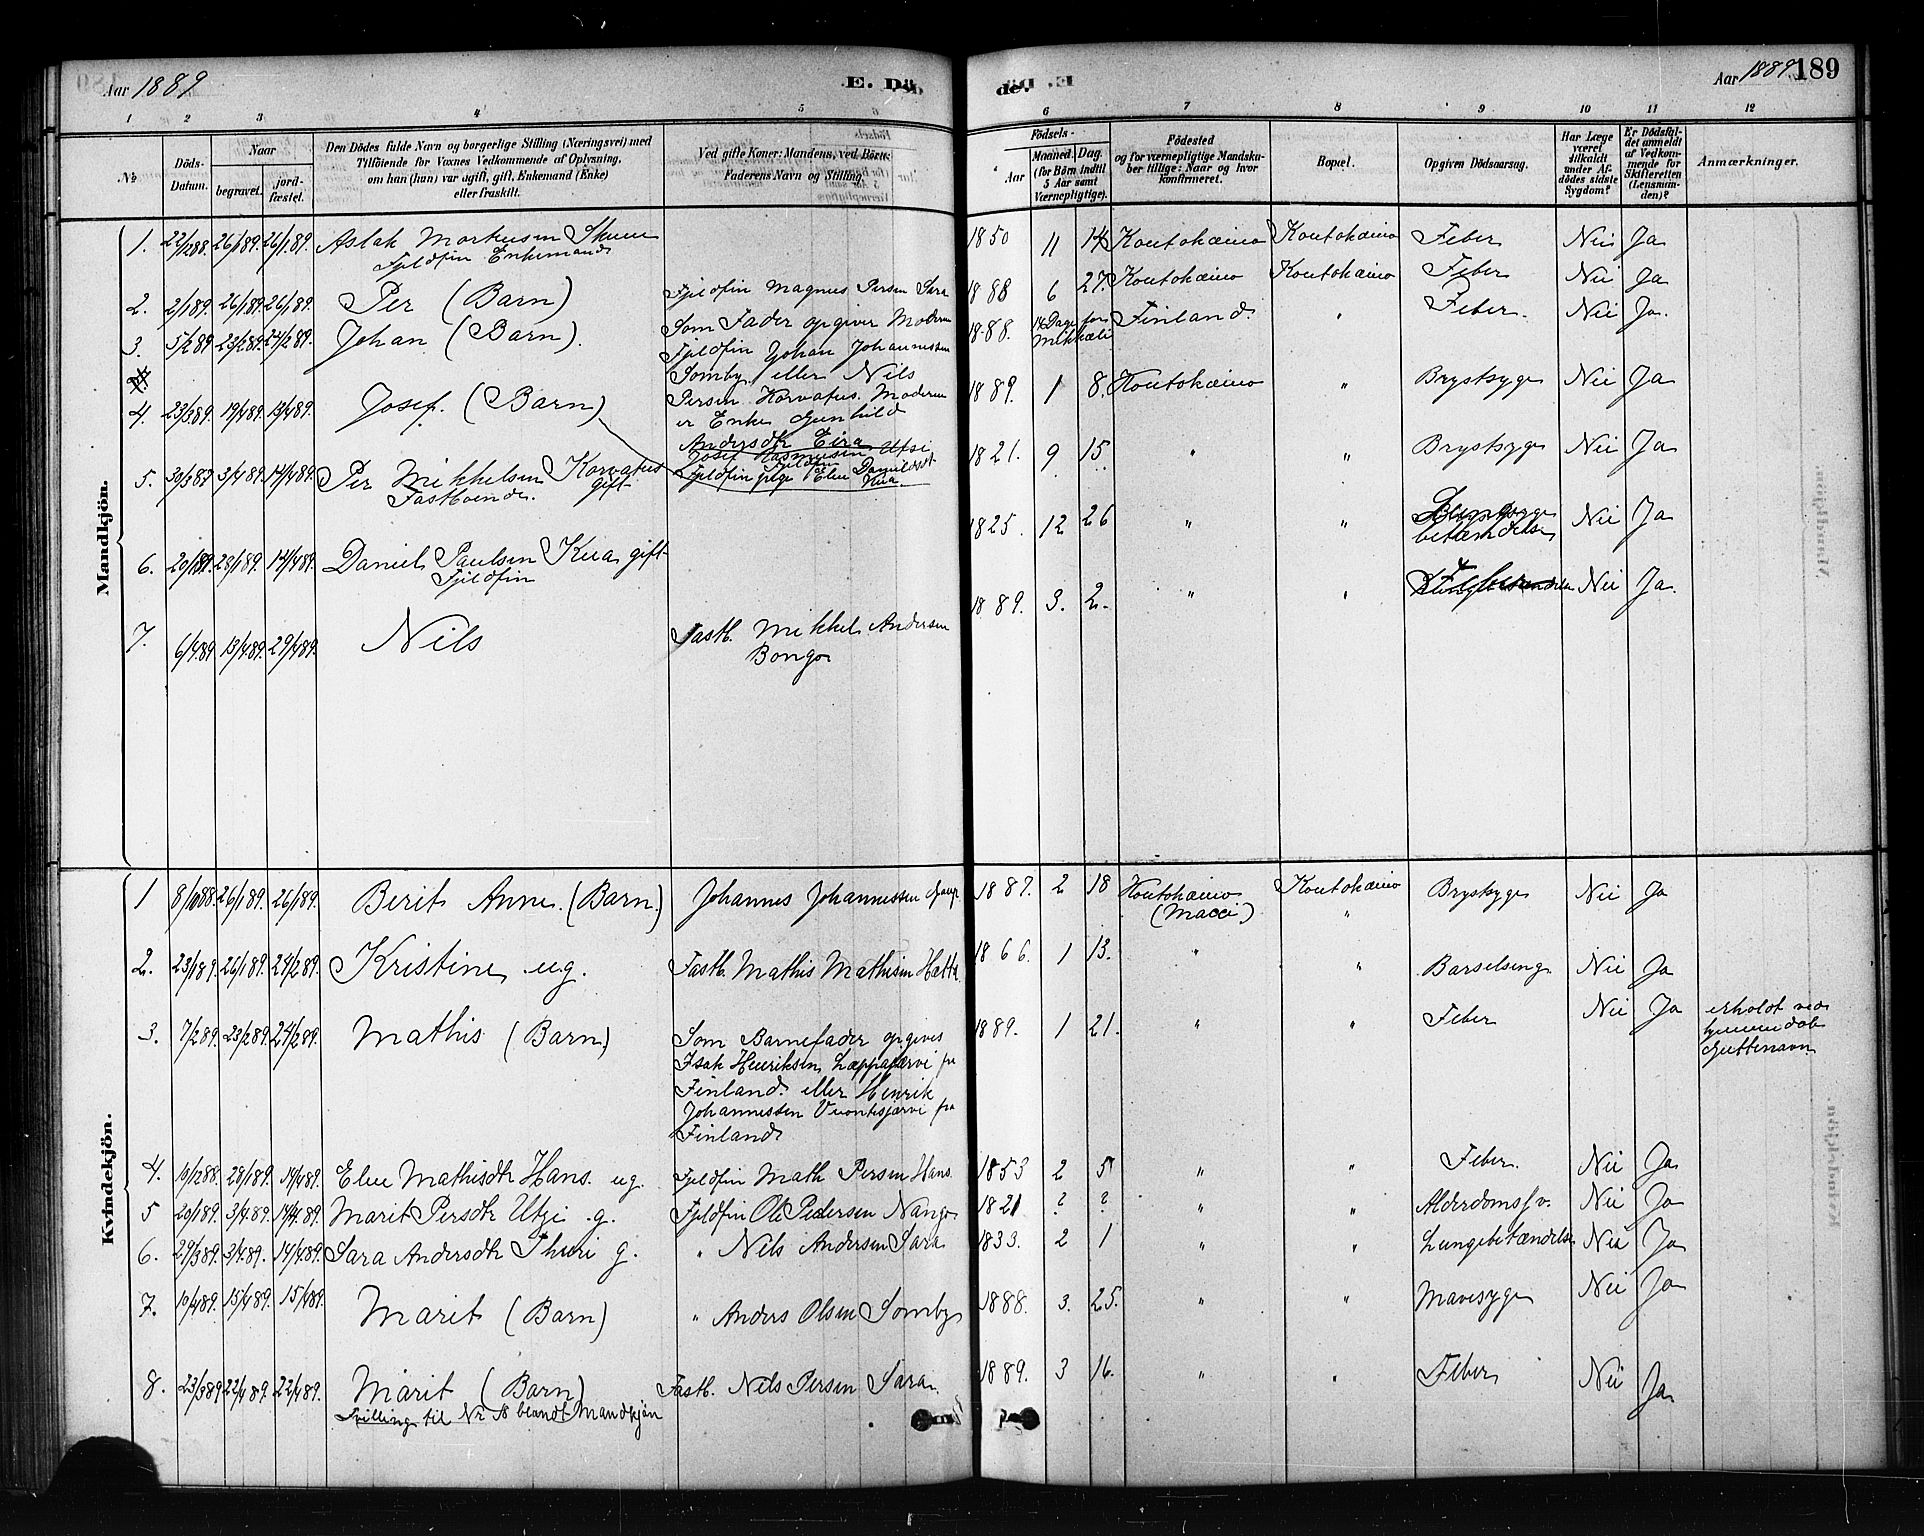 Aar 1889 E. Dö de. Aar 1889 189
1 2 3 4 5 6 7 8 9 10 11 12
№ Döds-Datum. Naar begravet. jordfæstet. Den Dödes fulde Navn og borgerlige Stilling (Næringsvei) med Tilföiende for Voxnes Vedkommende af Oplysning, om han (hun) var ugift, gift, Enkemand (Enke) eller fraskilt. Ved gifte Koner: Mandens, ved Börn: Faderens Navn og Stilling. Födsels- Aar Maaned. Dag. (for Börn indtil 5 Aar samt Værnepligtige). Födested og for værnepligtige Mandskaber tillige: Naar og hvor konfirmeret. Bopæl. Opgiven Dödsaarsag. Har Læge været tilkaldt under Afdödes sidste Sygdom? Er Dödsfaldet anmeldt af Vedkommende for Skifteretten (Lensmanden)? Anmærkninger.
Mandkjön.
1. 22/12 88. 26/1 89. 26/1 89. Aslak Mortensen Skum 1850 11 14 Koutokæino Koutokæino Feber Nei Ja
Fjeldfin Enkemand
2. 2/1 89. 26/1 89. 26/1 89. Per (Barn) Fjeldfin Magnus Persen Sara 1888 6 27. Koutokæino Koutokæino Feber Nei Ja
3. 5/2 89 23/2 89. 24/2 89. Johan (Barn). Som Fader opgiver Moderen 1888. 14 Dage før Mikkæli Finland. " Feber. Nei Ja.
Fjeldfin Johan Johannessen
Somby eller Nils
4. 23/3 89. 19/4 89. 19/4 89. Josef. (Barn) Persen Korvatus. Moderen 1889. 1 8. Koutokæino " Brystsyge Nei Ja
er Enke Gunhild
Andersdtr Eira
Josef Rasmussen Utsi
5. 30/3 89 3/4 89. 14/4 89. Per Mikkelsen Korvatus gift Fjeldfin pige Elen Danielsdt Kua 1821. 9 15 " " Brystsyge Nei Ja
Fastboende.
6. 20/1 89. 28/1 89. 14/4 89. Daniel Paulsen Kua gift 1825. 12 26 " " betændelse Nei Ja
Fjeldfin
7. 6/4 89 13/4 89. 29/4 89. Nils Fastb. Mikkel Andersen 1889. 3. 2. " " Nei Ja.
Bongo
Kvindekjön.
1 8/10 88. 26/1 89. 26/1 89. Berit Anne. (Barn.) Johannes Johannessen Gaup 1887. 2 18 Koutokæino Koutokæino Brystsyge Nei Ja
(Maeei) "
2. 23/1 89. 26/1 89. 24/2 89. Kristine ug. Fastb. Mathis Mathisen Hætta 1866. 1 13. " " Barselseng Nei Ja
3. 7/2 89. 23/2 89. 24/2 89. Mathis (Barn) Som Barnefader opgives 1889. 1 21. " " Feber Nei Ja erholdt ved
Isak Henriksen Læppæjærvi fra hjemmedåb
Finland. eller Henrik Guttenavn
Johannessen Vuontisjærvi fra
Finland
4. 10/12 88. 28/1 89. 14/4 89. Elen Mathisdtr Hans. ug. Fjeldfin Math. Persen Hans. 1853 2 5 " " Feber. Nei Ja
5 20/1 89. 3/4 89. 14/4 89. Marit Persdtr Utsi. g. Fjeldfin Ole Pedersen Nango 1821 ? ? " " Alderdomssv. Nei Ja
6. 29/3 89. 3/4 89. 14/4 89. Sara Andersdtr Thuri g. " Nils Andersen Sara 1833. 2 1 " " Lungebetændelse Nei Ja
7. 10/4 89. 15/4 89. 15/4 89. Marit (Barn) " Anders Olsen Somby 1888. 3. 25. " " Mavesyge Nei Ja
8. 23/3 89 22/4 89. 22/4 89. Marit (Barn) Fastb. Nils Persen Sara. 1889. 3 16. " " Feber Nei Ja
Tvilling til Nr 8 blandt Mandkjön